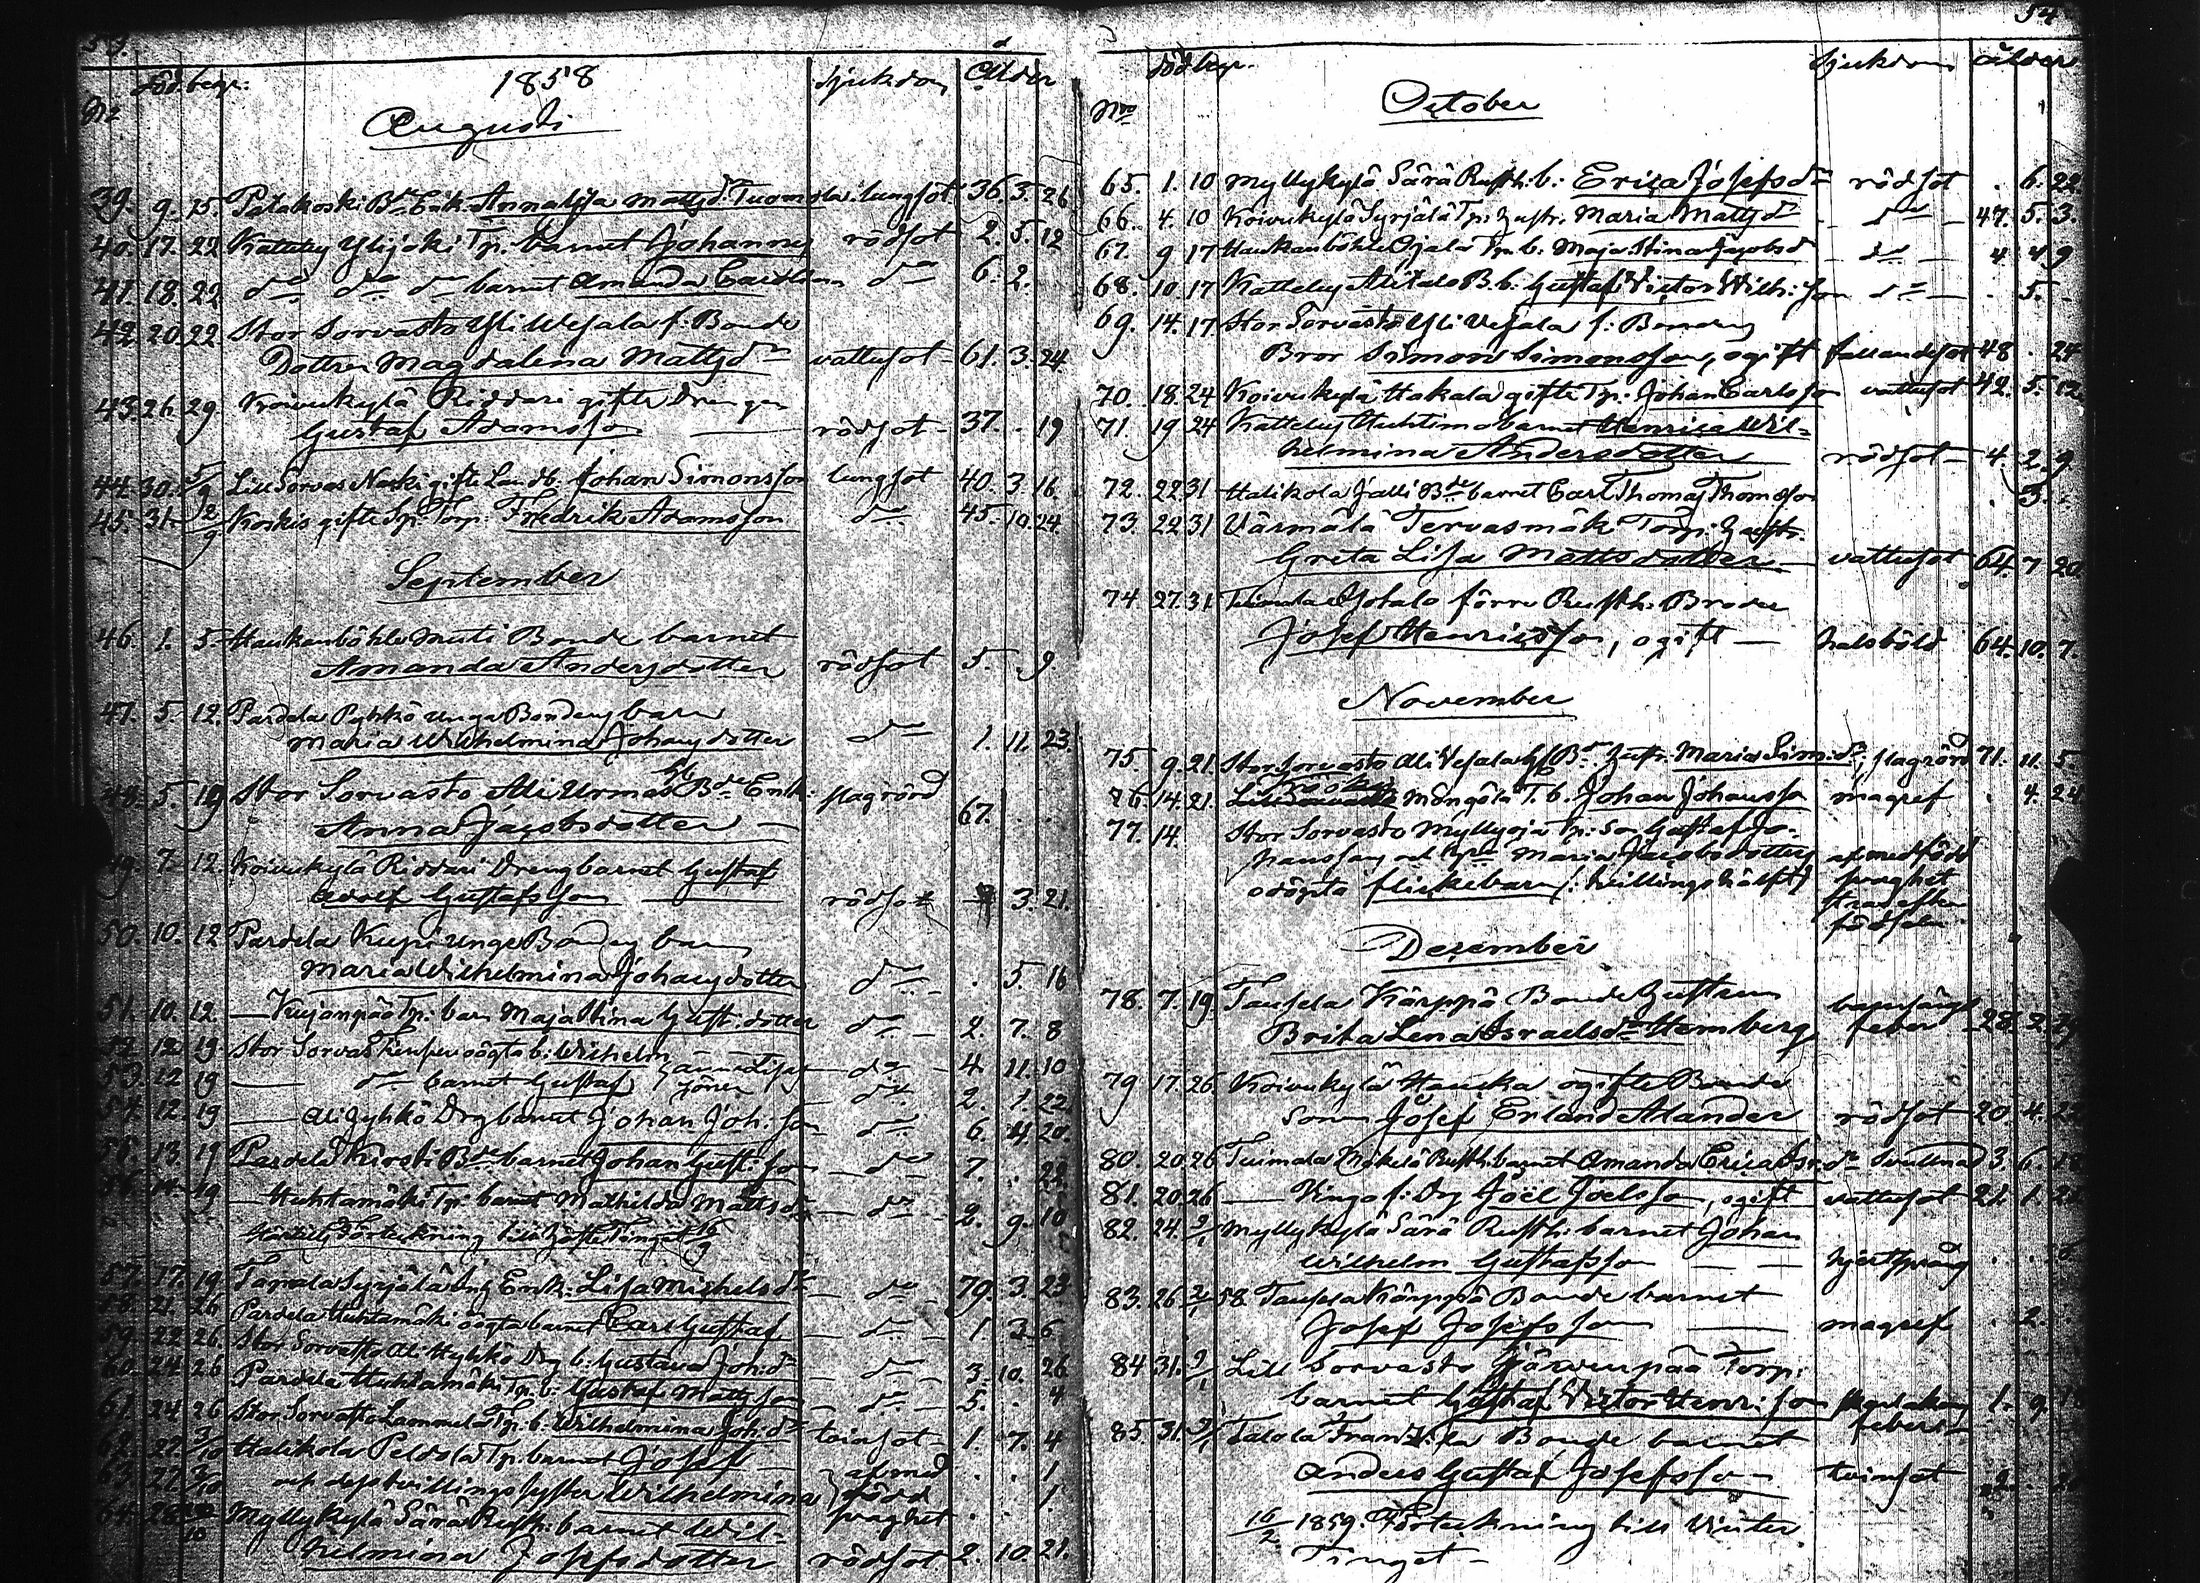 53.
1858
No död begr. sjukdom ålder
Augusti
39. 9. 15. Palakoski Bde Enk. Anna Lisa Mattsdr Tuomola lungsot 36. 3. 26
40. 17. 22 Kätteby Ylijoki Tp. barnet Johannes rödsot 2. 5. 12
41. 18. 22 do do do barnet Amanda Carolina do 6. 2.
42. 20. 22 Stor Sorvasto Yli Wesala f: Bonde
Dottren Magdalena Mattsdr vattusot 61. 3. 24.
43. 26. 29 Koivukylä Riddari gifte Drengen
Gustaf Adamsson rödsot 37. . 19
44. 30. 5/9 Lill Sorvas Naski gifte Landb. Johan Simonsson lungsot 40. 3. 16.
45. 31. 2/9 Koskis gifte Sp. Torp. Fredrik Adamsson do 45. 10. 24.
September
46. 1. 5. Haukanböhle Muti Bonde barnet
Amanda Andersdotter rödsot 5. . 9.
47. 5. 12. Pardela Pyhkö unga Bondens barn
Maria Wilhelmina Johansdotter do 1. 11. 23.
48. 5. 19 Stor Sorvasto Ali Urmas Bde Enk.
Anna Jacobsdotter slagrörd 67. . .
49. 7. 12. Koivukylä Riddari Drengbarnet Gustaf
Adolf Gustafsson rödsot 3. 21.
50. 10. 12 Pardela Kupi unge Bondens barn
Maria Wilhelmina Johansdotter do . 5 16
51. 10. 12. Kujanpää Tp. barn Maja Stina Gust. dotter do 2. 7. 8
52. 12. 19. Stor Sorvas oägta b. Wilhelm do 4 11. 10
53. 12 19 do barnet Gustaf do 2. 1. 22
54. 12. 19 Ali Jyhkö Drg barnet Johan Joh: son do 6. 4. 20.
55. 13. 19 Pardela Kirsti Bde barnet Johan Gust: son do 7. . 22.
56. 14. 19 Huhtamäki Tp. barnet Mathilda Mattsdr do 2. 9. 10
Förteckning till Höste Tinget 16/9
57. 17. 19 Tanala Syrjälä Enk. Lisa Michelsdr do 79. 3. 23
58. 21. 26 Pardela Huhtamäki oägta barnet Carl Gustaf do 1 3. 6
59. 22. 26. Stor Sorvasto Ali Hyhkö Drg b. Gustava Joh.dr do 3. 10. 26
60. 24. 26 Pardela Huhtamäki Tp. b. Gustaf Mattsson do 5. . 4
61. 24. 26 Stor Sorvasto Lammela Tp. b. Wilhelmina Joh.dr tvinsot 1. 7. 4
62. 27. 3/10 Halikola Peldola Tp. barnet Josef af med . . 1
63. 27. 3/10 och dess tvillingssyster Wilhelmina född . . 1.
svaghet
64. 28. Myllykylä Särä Rusth. barnet Wil-
helmina Josefsdotter rödsot 2. 10. 21.
54
No död begr. sjukdom ålder
October
65. 1. 10 Myllykylä Särä Rusth. b: Erica Josefsdr rödsot . 6. 22
66. 4. 10 Koivukylä Syrjälä Tp. hustr. Maria Mattsdr do 47. 5. 3.
67. 9 17 Haukanböhle Ojala Tp. b. Maja Stina Jacobsdr do 4 4 9
68. 10. 17 Kätteby Alitalo B. b. Gustaf Victor Wilh: son do . 5. .
69. 14. 17 Stor Sorvasto Yli Vesala f: Bondens
Bror Simon Simonsson, ogift fallandesot 48 . 24
70. 18. 24 Koivukylä Hakala gifte Tp. Johan Carlsson vattusot 42. 5. 12
71. 19 24 Kätteby Huhtimo barnet Henrica Wil-
helmina Andersdotter rödsot 4. 2. 9
72. 22 31 Halikola Jalli Bde barnet Carl Thomas Thomsson . 3. .
73. 22 31 Värmälä Tervasmäki Torp. hustr.
Greta Lisa Mattsdotter vattusot 64. 7 20
74 27. 31 Tuimala Isotalo förre Rusth. Broder
Josef Henricsson, ogift halsböld 64. 10. 7.
November
75. 9. 21. Stor Sorvasto Ali Vesala Bde hustr. Maria Sim.dr slagrörd 71. 11. 5.
76. 14. 21. Mongola T. b. Johan Johansson magref . 4. 24
77. 14. Stor Sorvasto Myllyoja Tp. son Gustaf Jo-
hansson och Maria Jacobsdotters af medfödd
odöpta flickebarn (: tvillingshälft) svaghet
strax efter
födseln
December
78. 7. 19. Taupela Kärppä Bonde Hustrun barnsängs
Brita Lena Israelsdr Hemberg feber 28. 2. 29
79 17. 26 Koivukylä Hauska ogifte Bonde
son Josef Erland Alander rödsot 20. 4. 22
80. 20. 26 Tuimala Mäkelä Rusth. barnet Amanda Erica 3. 6. 18
81. 20. 26 Kingo f: Drg Joël Joelsson, ogift vattusot 21. 1. 21
82. 24. 2/1 Myllykylä Särä Rusth. barnet Johan
Wilhelm Gustafsson hjertsprång
83. 26 2/1 58 Taupela Kärppä Bonde barnet
Josef Josefsson magref . 2.
84 31. 9/1 Lill Sorvasto Järvenpää Torp.
barnet Gustaf Victor Henr: son skarlakans 1. 9.
feber
85. 31. 9/1 Talola Franzila Bonde barnet
Anders Gustaf Josefsson tvinsot 2.
16/2 1859. Förteckning till Vinter
Tinget